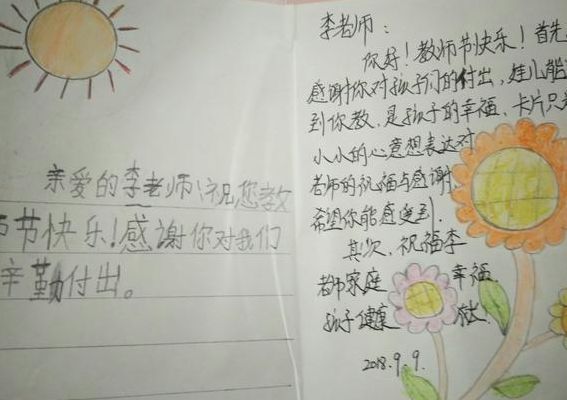 亲爱的李老师:祝您教
师节快乐!感谢你对我们
辛勤付出。
李老师:
你好!教师节快乐!首先
感谢你对孩子们的付出,娃儿能
到你教,是孩子的幸福,卡片只是
小小的心意想表达对
老师的祝福与感谢,
希望你能感受到.
其次,祝福李
老师家庭 幸福
孩子健康
2018.9.9.